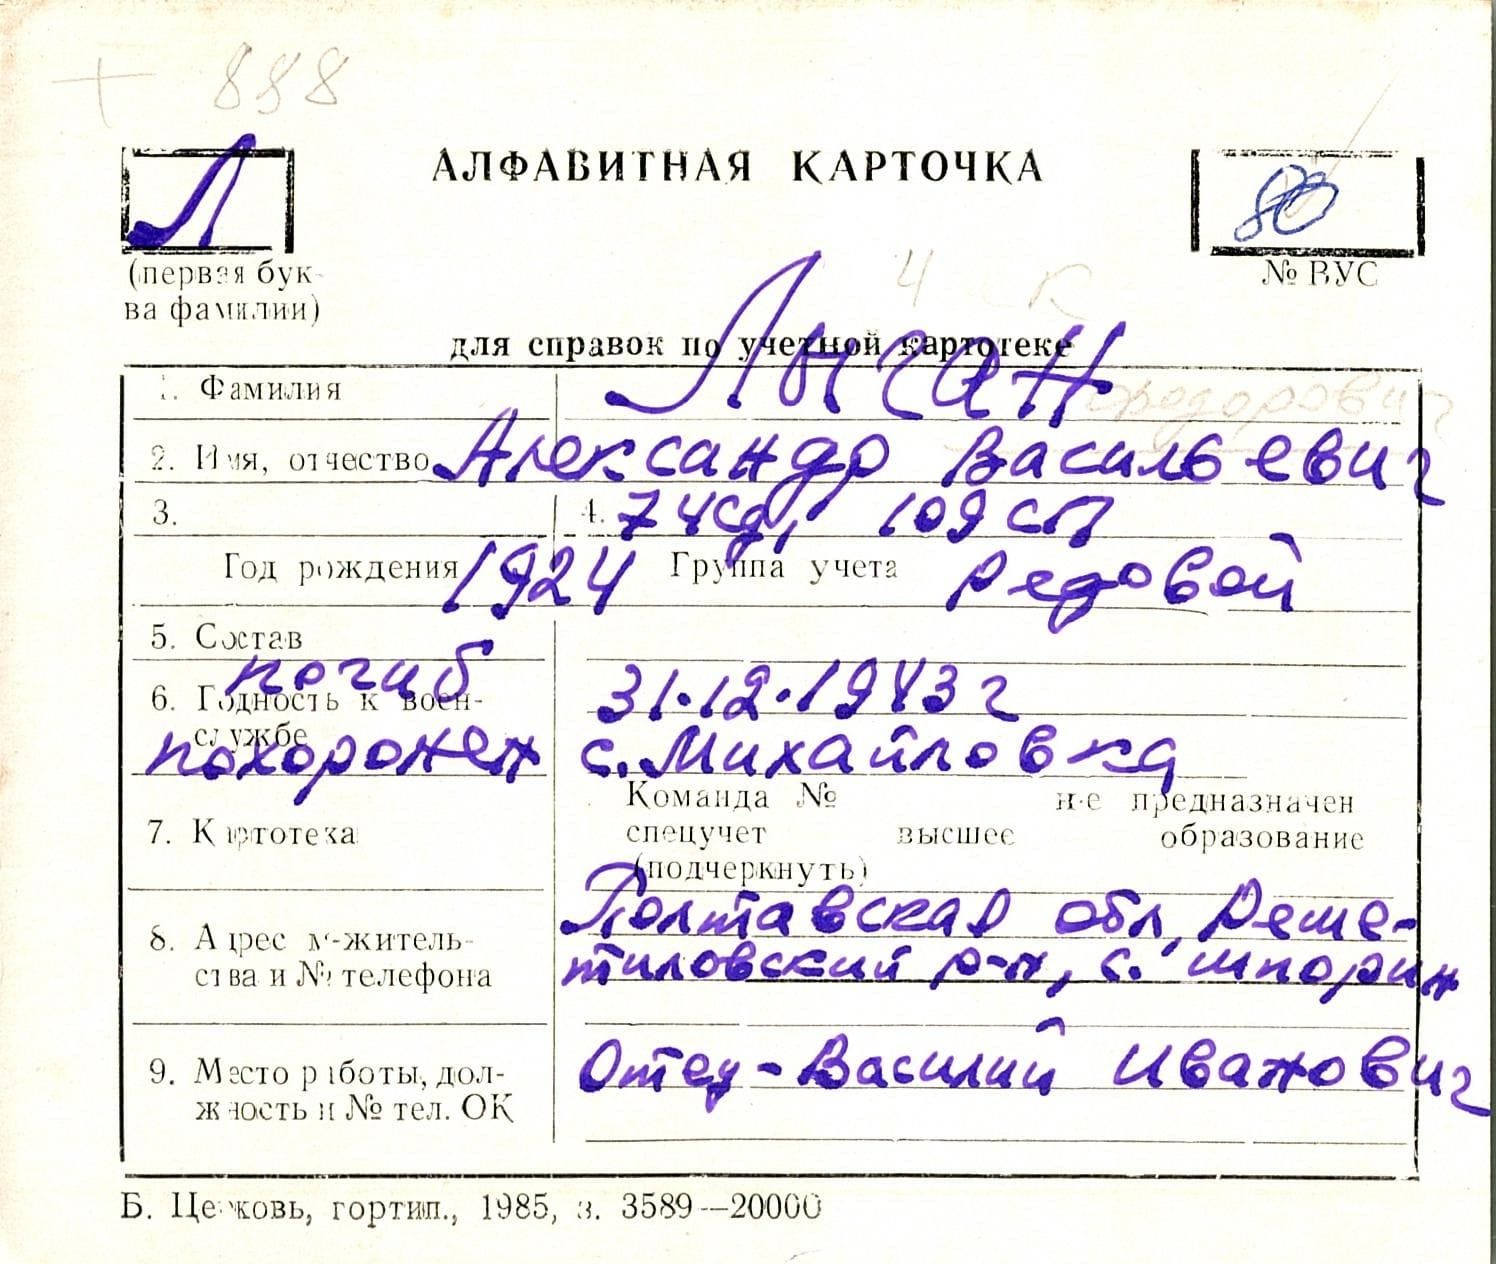 + 888
Л
АЛФАВИТНАЯ КАРТОЧКА
80
(первая бук-
ва фамилии)
№ ВУС
4 к
для справок по учетной картотеке
1. Фамилия Лыган
2. Имя, отчество Александр Васильевич
3. 4. 74сд, 109 сп
Год рождения 1924 Группа учета редовой
5. Состав
погиб 31.12.1943 г
6. Годность к воен-
службе
похоронен с. Михайловка
Команда № не предназначен
7. Картотека спецучет высшее образование
(подчеркнуть)
Полтавская обл, Реше-
8. Адрес м-житель-
ства и № телефона
тиловский р-н, с. шпорин
9. Место работы, дол-
жность и № тел. ОК
Отец - Василий Иванович
Б. Церковь, гортип., 1985, з. 3589—20000